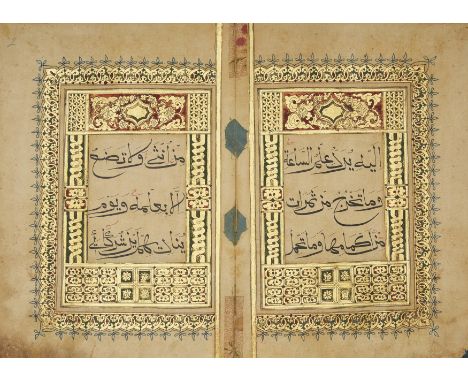 اليه يرد علم الساعة
وما تخرج من ثمرات
من اكمامها وما تحمل
من انثى ولا تضع
الا بعلمه ويوم
يناديهم اين شركائي